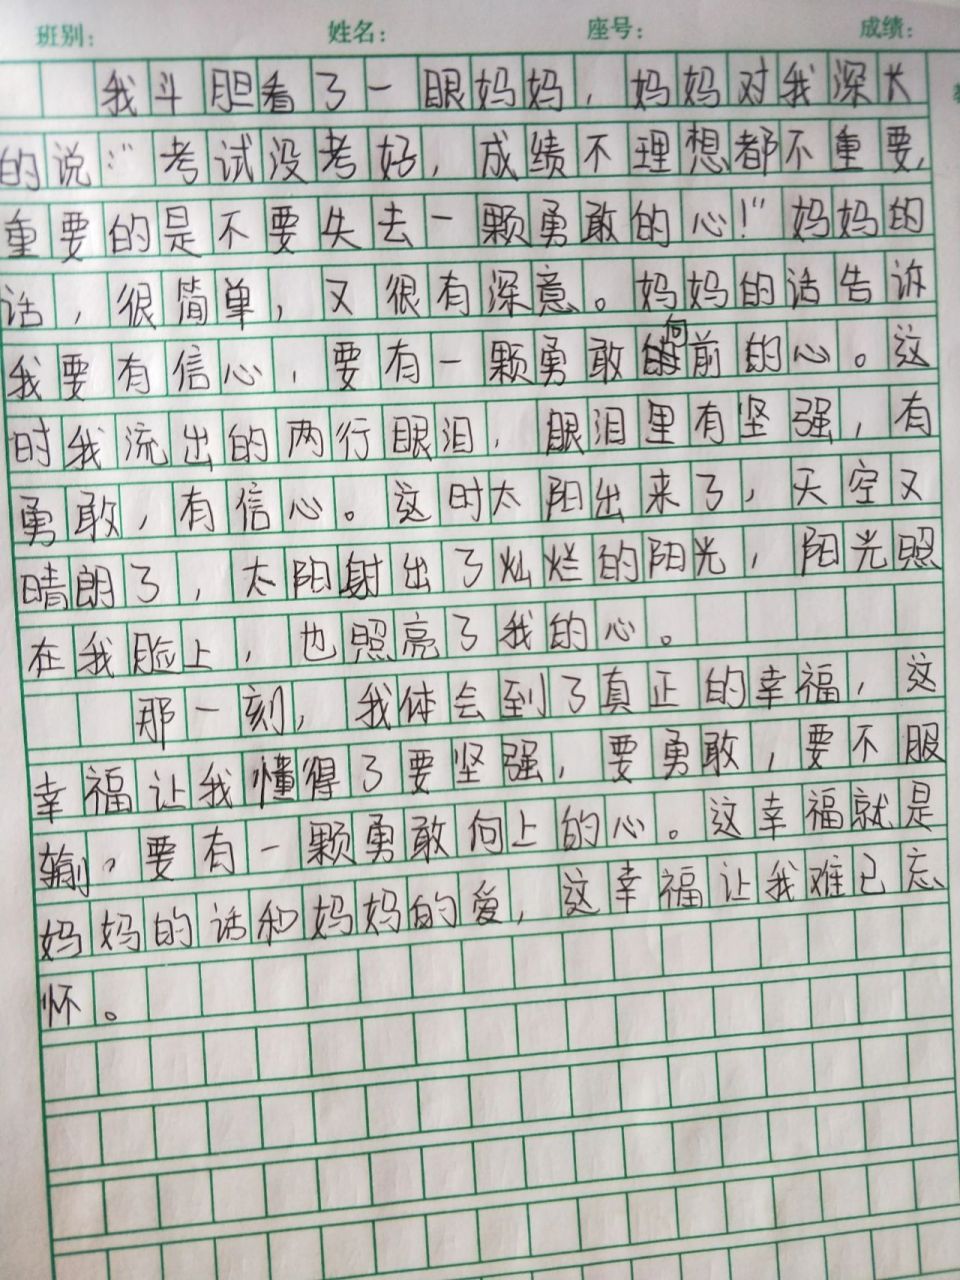 班别： 姓名： 座号： 成绩：
我斗胆看了一眼妈妈，妈妈对我深大
的说：“考试没考好，成绩不理想都不重要，
重要的是不要失去一颗勇敢的心！”妈妈的
话，很简单，又很有深意。妈妈的话告诉
我要有信心，要有一颗勇敢向前的心。这
时我流出的两行眼泪，眼泪里有坚强，有
勇敢，有信心。这时太阳出来了，天空又
晴朗了，太阳射出了灿烂的阳光，阳光照
在我脸上，也照亮了我的心。
那一刻，我体会到了真正的幸福，这
幸福让我懂得了要坚强，要勇敢，要不服
输，要有一颗勇敢向上的心。这幸福就是
妈妈的话和妈妈的爱，这幸福让我难已忘
怀。